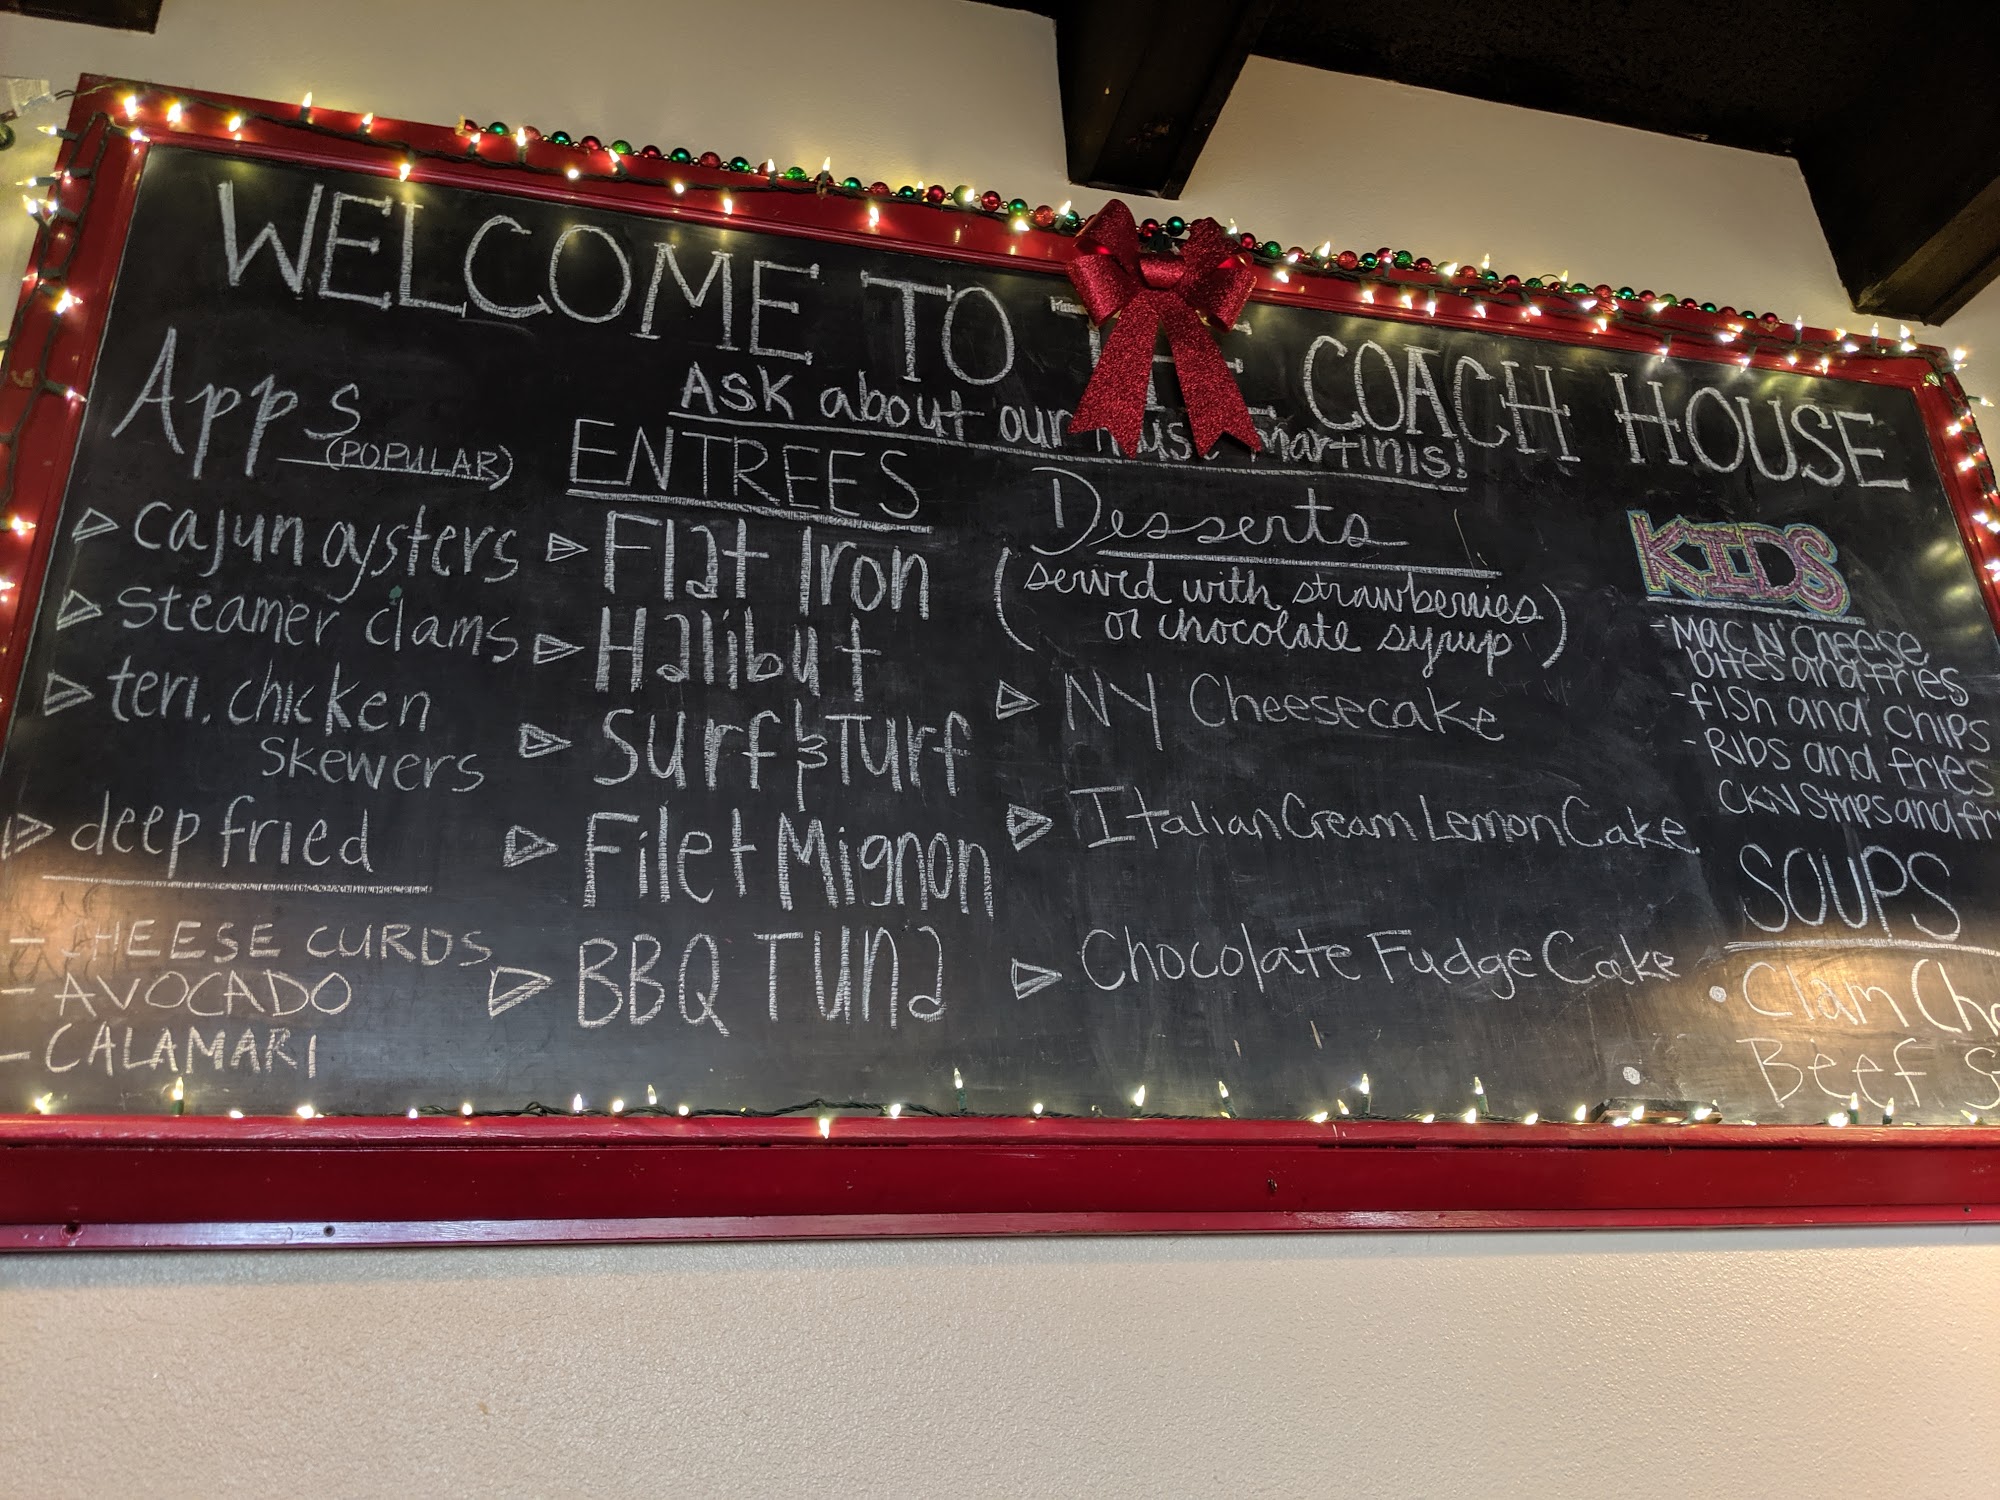 WELCOME TO THE COACH HOUSE
Ask about our martinis!
Apps
(POPULAR)
cajun oysters
steamer clams
teri. chicken
skewers
deep fried
- CHEESE CURDS
- AVOCADO
- CALAMARI
ENTREES
Flat Iron
Halibut
Surf & Turf
Filet Mignon
BBQ Tuna
Desserts
(served with strawberries
or chocolate syrup)
NY Cheesecake
Italian Cream Lemon Cake
Chocolate Fudge Cake
KIDS
- Mac N' Cheese
bites and fries
- fish and chips
- Ribs and fries
CKN Strips and fr
SOUPS
• Clam Cho
• Beef S